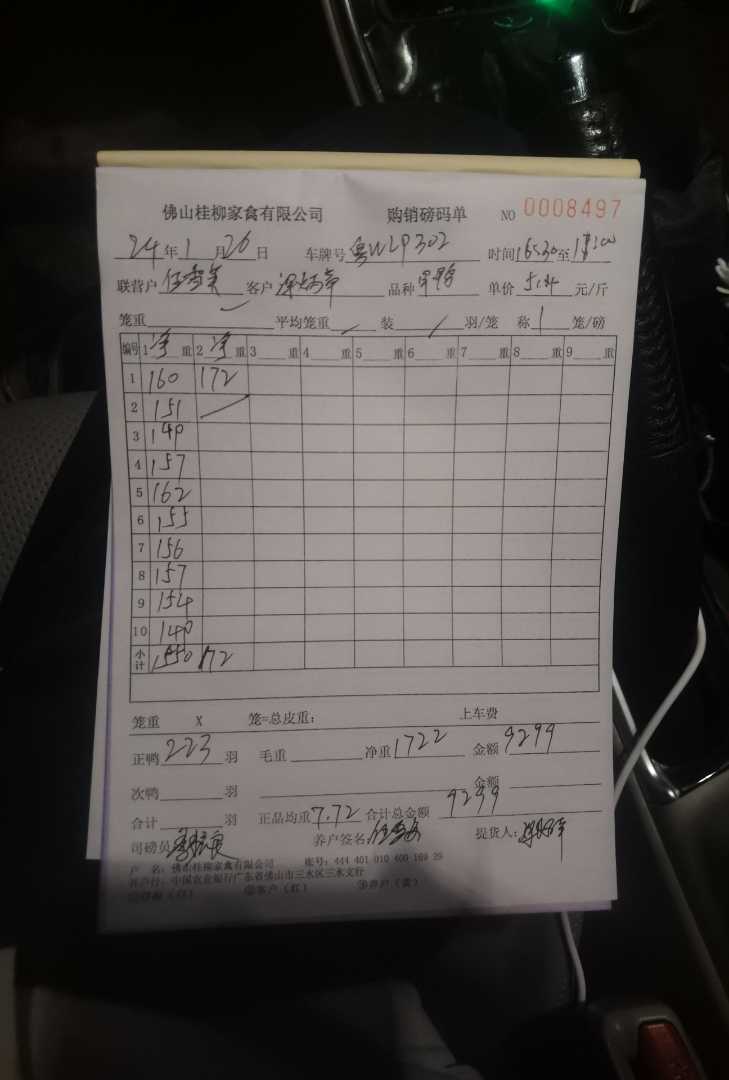 佛山桂柳家禽有限公司 购销磅码单 NO 0008497
24年1月26日 车牌号 粤WLP302 时间16:30至
联营户 客户 品种 单价5.4元/斤
笼重 平均笼重 装 羽/笼 称1笼/磅
编号 1净重 2净重 3重 4重 5重 6重 7重 8重 9重
1 160 172
2 151
3 140
4 157
5 162
6 155
7 156
8 157
9 154
10 140
小计 1550 172
笼重 X 笼=总皮重: 上车费
正鸭223羽 毛重 净重1722 金额9299
次鸭 羽 金额
合计 羽 正品均重7.72 合计总金额 9299
司磅员 养户签名: 提货人:
户 名: 佛山桂柳家禽有限公司 账号: 444 401 010 400 169 29
开户行: 中国农业银行广东省佛山市三水区三水支行
②客户(红) ③养户(黄)